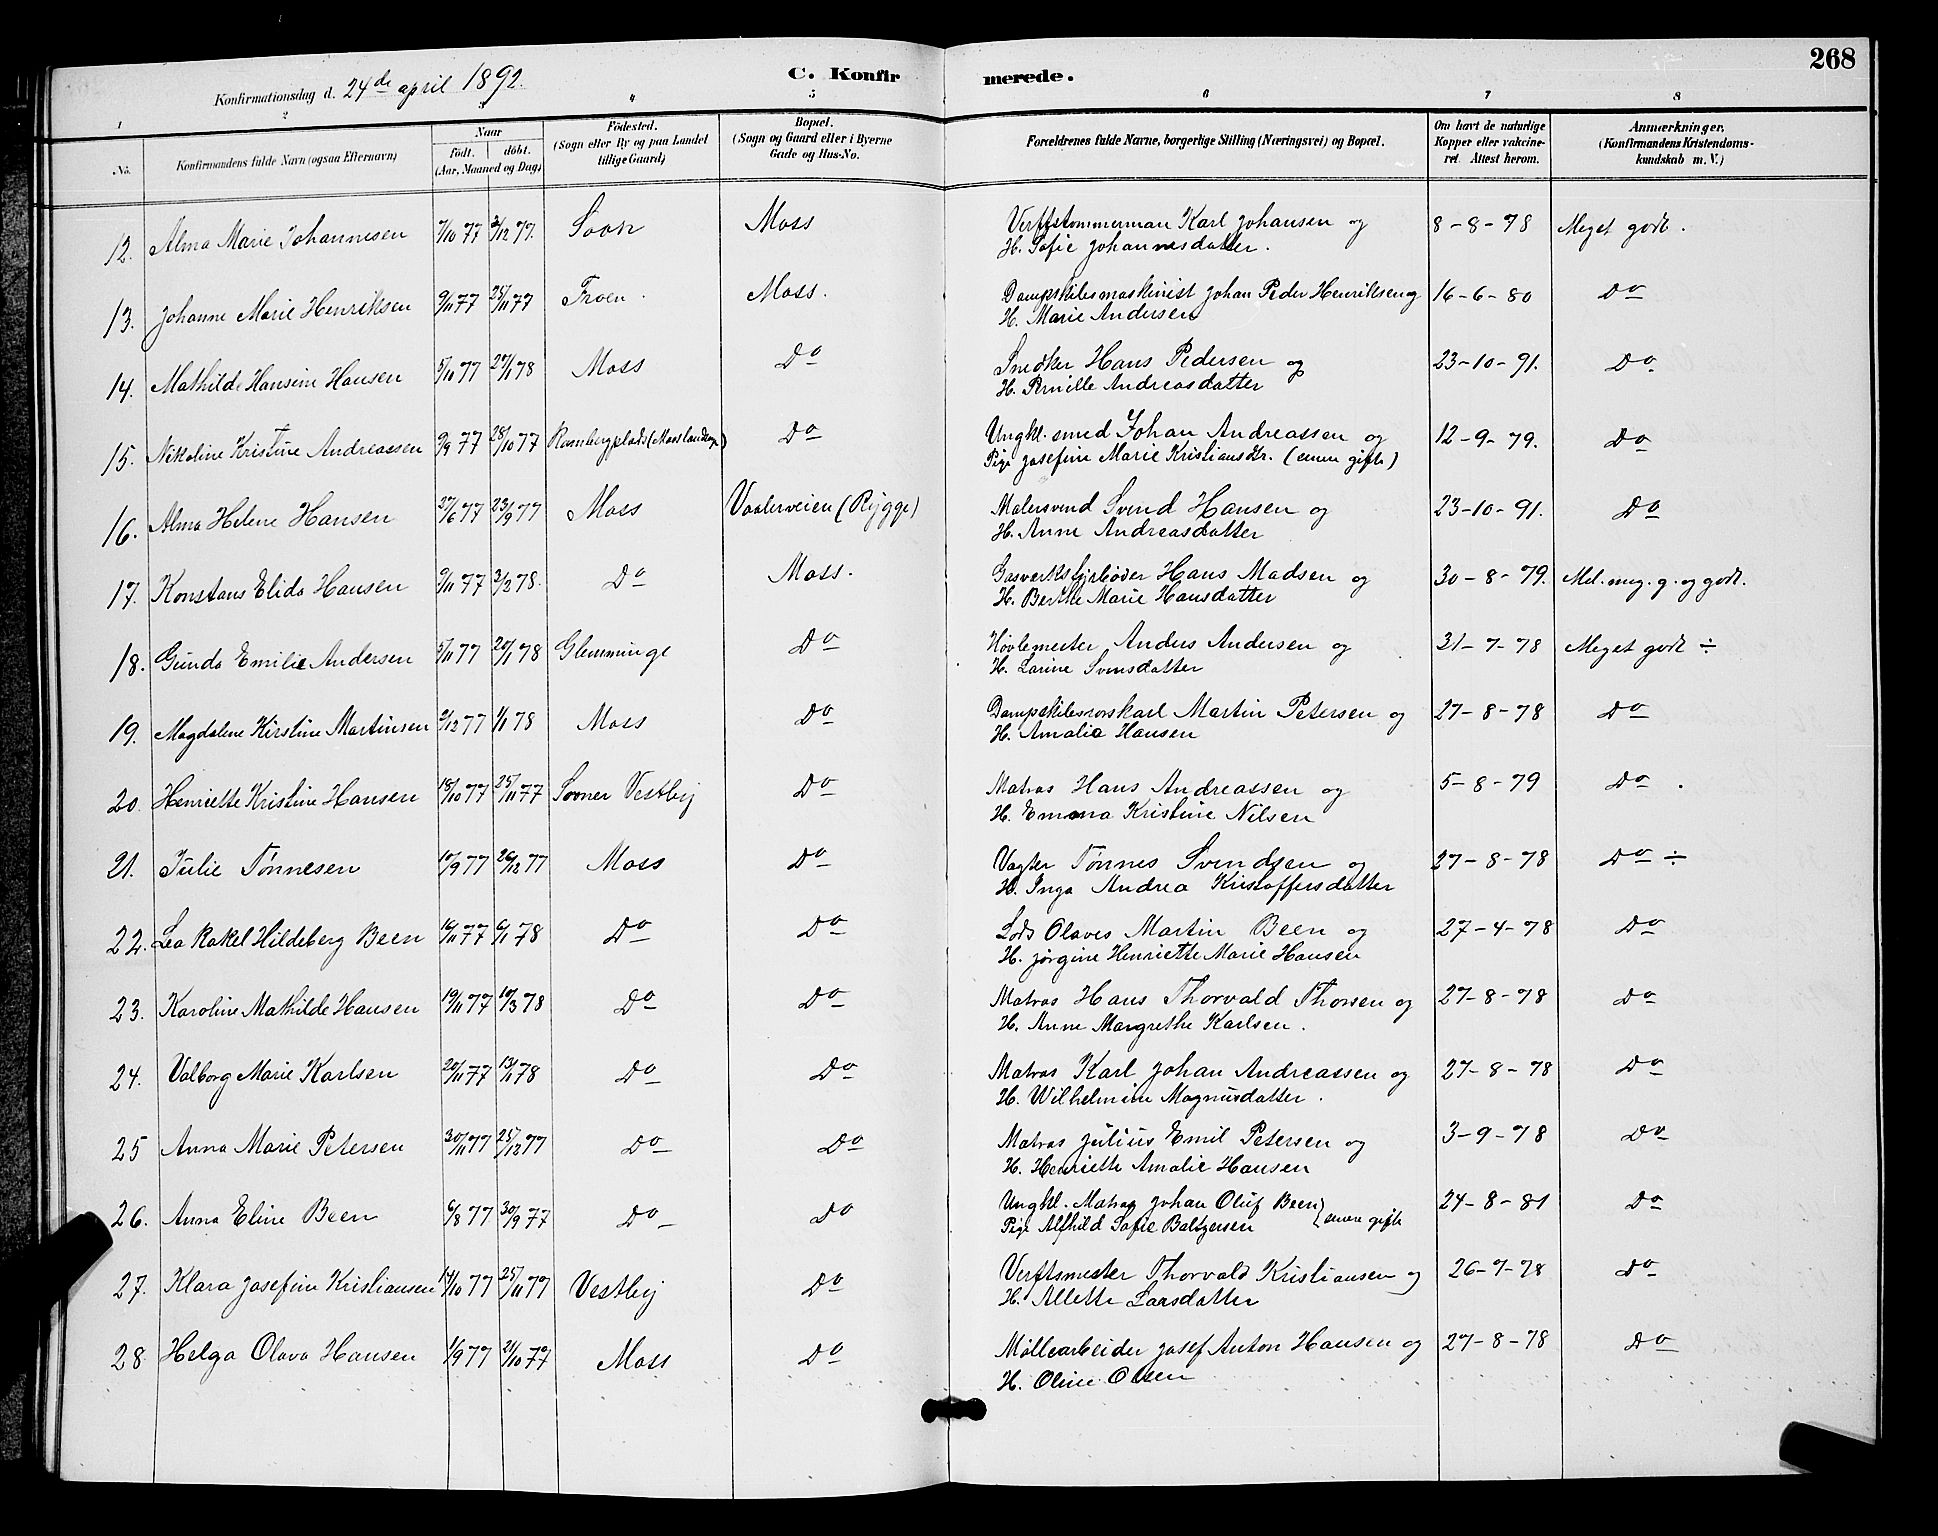 268
C. Konfirmerede.
Konfirmationsdag d. 24de april 1892.
1 2 3 4 5 6 7 8
No. Konfirmandens fulde Navn (ogsaa Efternavn) Naar født. døbt. (Aar, Maaned og Dag) Fødested. (Sogn eller By og paa Landet tillige Gaard) Bopæl. (Sogn og Gaard eller i Byerne Gade og Hus-No. Forældrenes fulde Navne, borgerlige Stilling (Næringsvei) og Bopæl. Om havt de naturlige Kopper eller vakcineret. Attest herom. Anmærkninger. (Konfirmandens Kristendomskundskab m. V.)
12. Alma Marie Johannesen 7/10 77 2/12 77. Soon Moss Verftstommerman Karl Johansen og 8-8-78 Meget godt.
H. Sofie Johannesdatter.
13. Johanne Marie Henriksen 9/11 77 25/11 77 Froen. Moss. Dampskibsmaskinist Johan Peder Henriksen og 16-6-80 Do
H. Marie Andersen
14. Mathilde Hansine Hansen 5/10 77 27/1 78 Moss Do Snedker Hans Pedersen og 23-10-91. Do
H. Pernille Andreasdatter
15. Nikoline Kristine Andreassen 9/9 77 28/10 77 (Moss landsogn) Do Ungkl. smed Johan Andreassen og 12-9-79. Do
Pige Josefine Marie Kristiansdr. (senere gifte)
16. Alma Helene Hansen 27/6 77 23/9 77 Moss Vaalerveien (Rygge) Malersvend Svend Hansen og 23-10-91. Do
H. Anne Andreasdatter
17. Konstans Elida Hansen 9/11 77 3/2 78. Do Moss. Gasverksfyrbøder Hans Madsen og 30-8-79. Mel. meg. g. og godt.
H. Berthe Marie Hansdatter
18. Gunda Emilie Andersen 5/11 77 20/1 78 Glemminge Do Høvlemester Anders Andersen og 31-7-78 Meget godt ÷
H. Larine Svensdatter
19. Magdalene Kirstine Martinsen 9/12 77 1/1 78 Moss Do Dampskibsrorskarl Martin Petersen og 27-8-78 Do
H. Amalia Hansen
20. Henriette Kristine Hansen 18/10 77 25/11 77 Sooner Vestby Do Matros Hans Andreassen og 5-8-79 Do.
H. Emma Kristine Nilsen
21. Julie Tønnesen 17/9 77 26/12 77 Moss Do Vagter Tønnes Svendsen og 27-8-78 Do ÷
H. Inga Andrea Kristoffersdatter
22. Lea Rakel Hildeberg Been 16/11 77 6/1 78 Do Do Lods Olaves Martin Been og 27-4-78 Do
H. Jørgine Henriette Marie Hansen
23. Karoline Mathilde Hansen 19/11 77 17/3 78 Do Do Matros Hans Thorvald Thorsen og 27-8-78 Do
H. Anne Margrethe Karlsen.
24. Valborg Marie Karlsen 20/11 77 13/1 78 Do Do Matros Karl Johan Andreassen og 27-8-78 Do
H. Wilhelmine Magnusdatter.
25 Anna Marie Petersen 30/11 77 25/12 77 Do Do Matros Julius Emil Petersen og 3-9-78 Do
H. Henriette Amalie Hansen
26. Anna Eline Been 6/8 77 30/9 77 Do Do Ungkl. Matros Johan Oluf Been 24-8-81 Do
Pige Alfhild Sofie Baltzersen } senere gifte
27. Klara Josefine Kristiansen 14/10 77 25/11 77 Vestby Do Verftsmester Thorvald Kristiansen og 26-7-78 Do
H. Allette Larsdatter
28. Helga Olava Hansen 1/9 77 21/10 77 Moss Do Møllearbeider Josef Anton Hansen og 27-8-78 Do
H. Oline Olsen